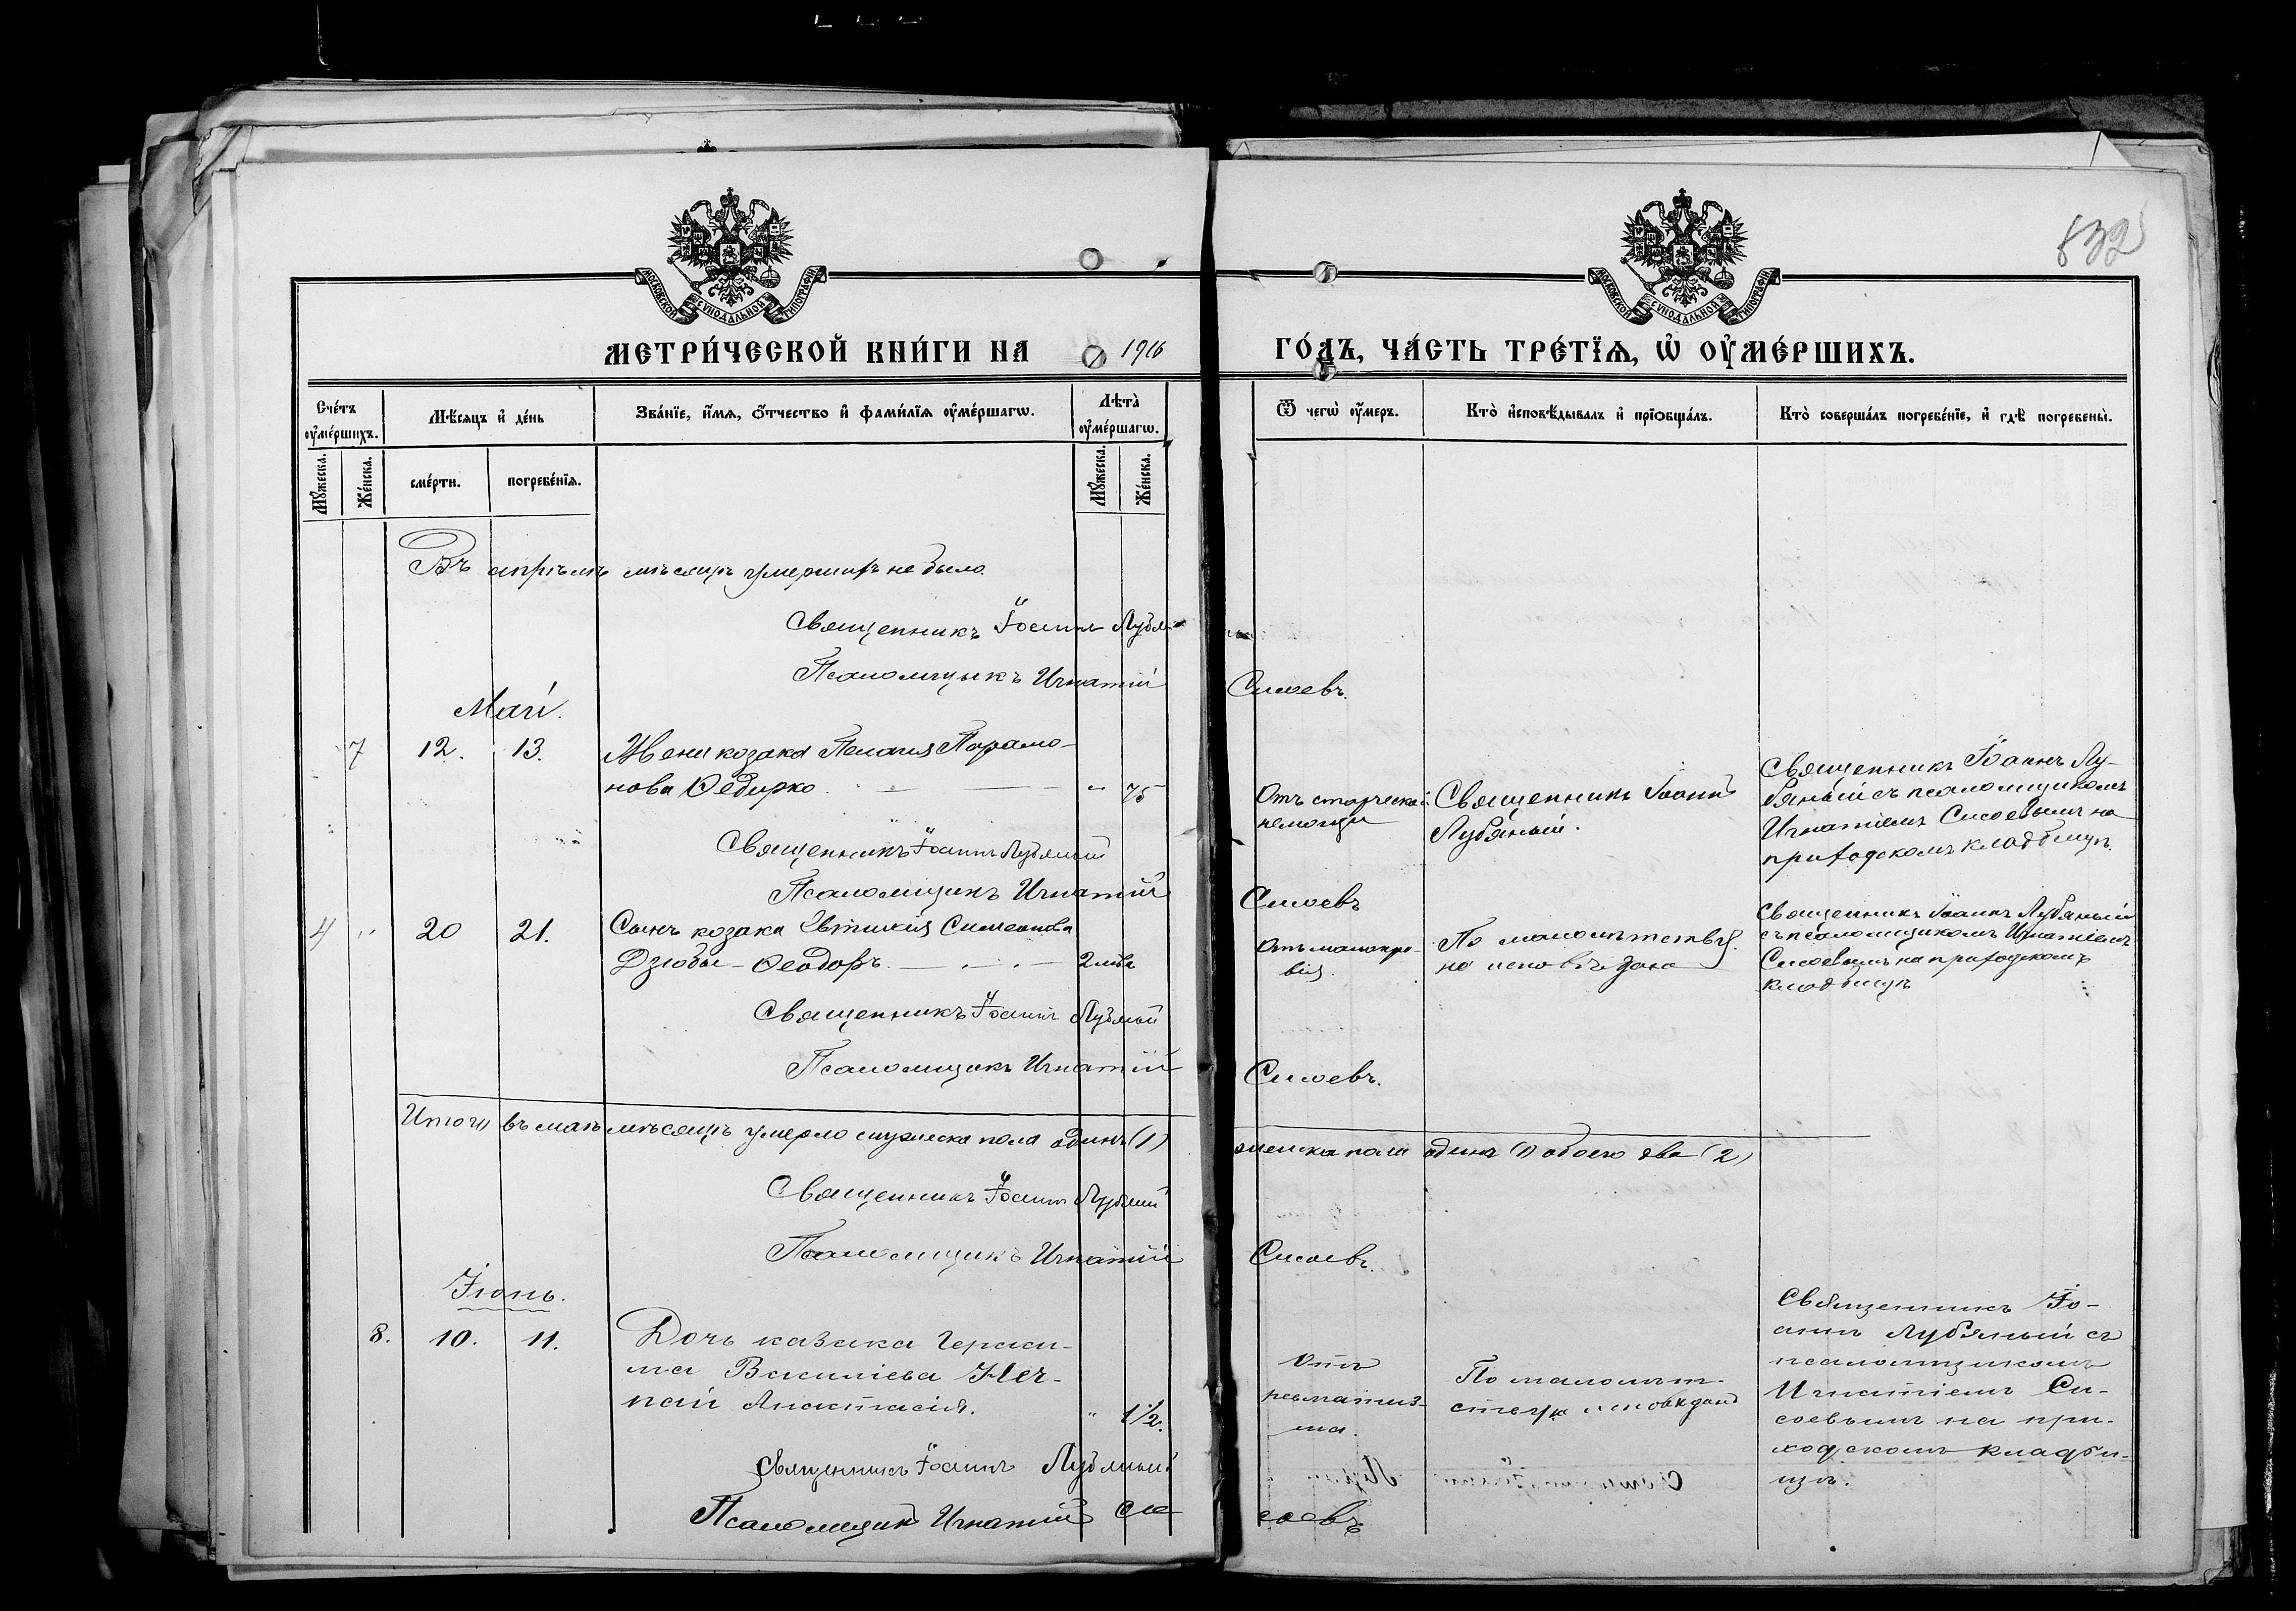 832
МОСКОВСКОЙ СѴНОДАЛЬНОЙ ТИПОГРАФІИ
МОСКОВСКОЙ СѴНОДАЛЬНОЙ ТИПОГРАФІИ
МЕТРИ́ЧЕСКОЙ КНИ́ГИ НА 1916 ГО́ДЪ, ЧА́СТЬ ТРЕ́ТІЯ, Ѡ҆ ОУ҆МЕ́РШИХЪ.
Сче́тъ оу҆ме́ршихъ.
Мѣ́сяцъ и҆ де́нь
Зва́нїе, и҆́мя, ѻ҆́тчество и҆ фами́лїя оу҆ме́ршагѡ.
Лѣ́та̀ оу҆ме́ршагѡ.
Ѿ чегѡ̀ оу҆́меръ.
Кто̀ и҆сповѣ́дывалъ и҆ прїѻбща́лъ.
Кто̀ соверша́лъ погребе́нїе, и҆ гдѣ̀ погребены̀.
Мꙋ́жеска.
Же́нска.
сме́рти.
погребе́нїя.
Мꙋ́жеска.
Же́нска.
Въ апрѣлѣ мѣсяцѣ умершихъ не было.
Священникъ Іоаннъ Лубяный
Псаломщикъ Игнатій Сисоевъ.
Май.
7 12. 13. Жена козака Пелагія Парамо-
нова Федирко - - „ 75
Отъ старческой
немощи
Священникъ Іоаннъ
Лубяный.
Священникъ Іоаннъ Лу-
бяный съ псаломщикомъ
Игнатіемъ Сисоевымъ на
приходскомъ кладбищѣ.
Священникъ Іоаннъ Лубяный
Псаломщикъ Игнатій Сисоевъ
4 „ 20 21. Сынъ козака Евтихія Симеонова
Дзюбы - Феодоръ. - . - 2 мѣс
Отъ малокро-
вія.
По малолѣтству
не исповѣдана
Священникъ Іоаннъ Лубяный
съ псаломщикомъ Игнатіемъ
Сисоевымъ на приходскомъ
кладбищѣ
Священникъ Іоаннъ Лубяный
Псаломщикъ Игнатій Сисоевъ.
Итого въ маѣ мѣсяцѣ умерло мужеска пола одинъ (1) женска пола одинъ (1) обоего два (2)
Священникъ Іоаннъ Лубяный
Псаломщикъ Игнатій Сисоевъ.
Іюнь.
8. 10. 11. Дочь казака Гераси-
ма Василіева Неч-
пай Анастасія. „ 1½.
Отъ
ревматиз-
ма.
По малолѣт-
ству не исповѣдана
Священникъ Іо-
аннъ Лубяный съ
псаломщикомъ
Игнатіемъ Си-
соевымъ на при-
ходскомъ кладби-
щѣ.
Священникъ Іоаннъ Лубяный
Псаломщикъ Игнатій Сисоевъ